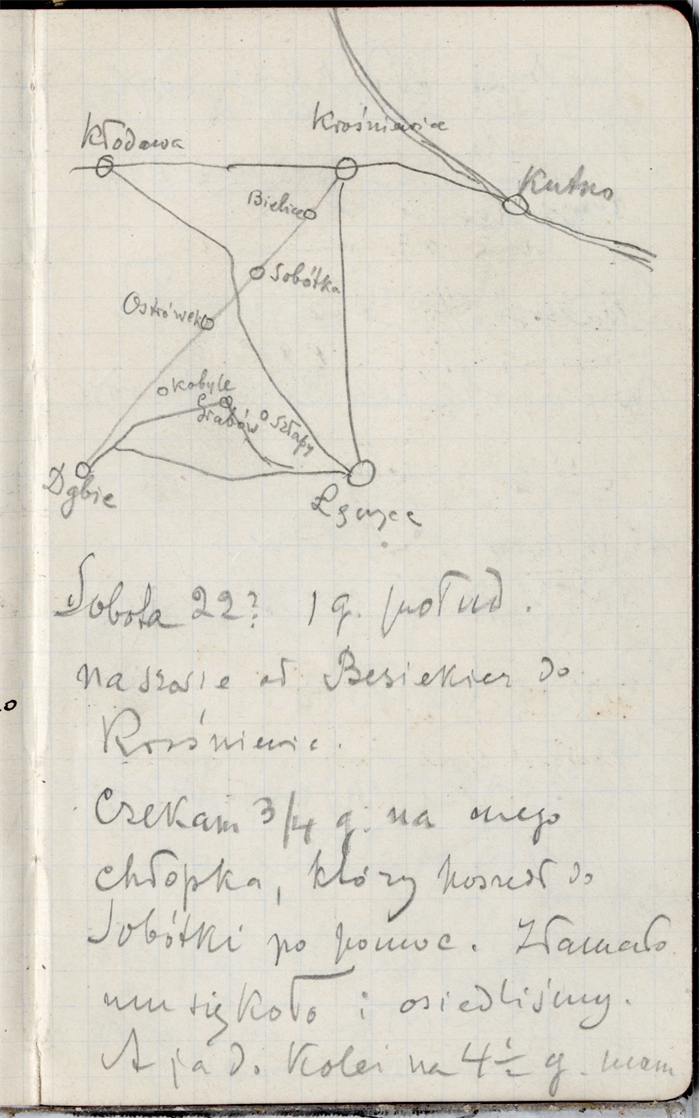 Kłodawa
Krośniewice
Kutno
Bielice
Sobótka
Ostrówek
Kobyle
Grabów
Sztapy
Dąbie
Łęczyca
Sobota 22? 1 g. połud.
na szosie od Besiekier do
Krośniewic.
Czekam 3/4 g. na mego
chłopka, który poszedł do
Sobótki po pomoc. Złamało
mu się koło i osiedliśmy.
A ja do kolei na 4 1/2 g. mam